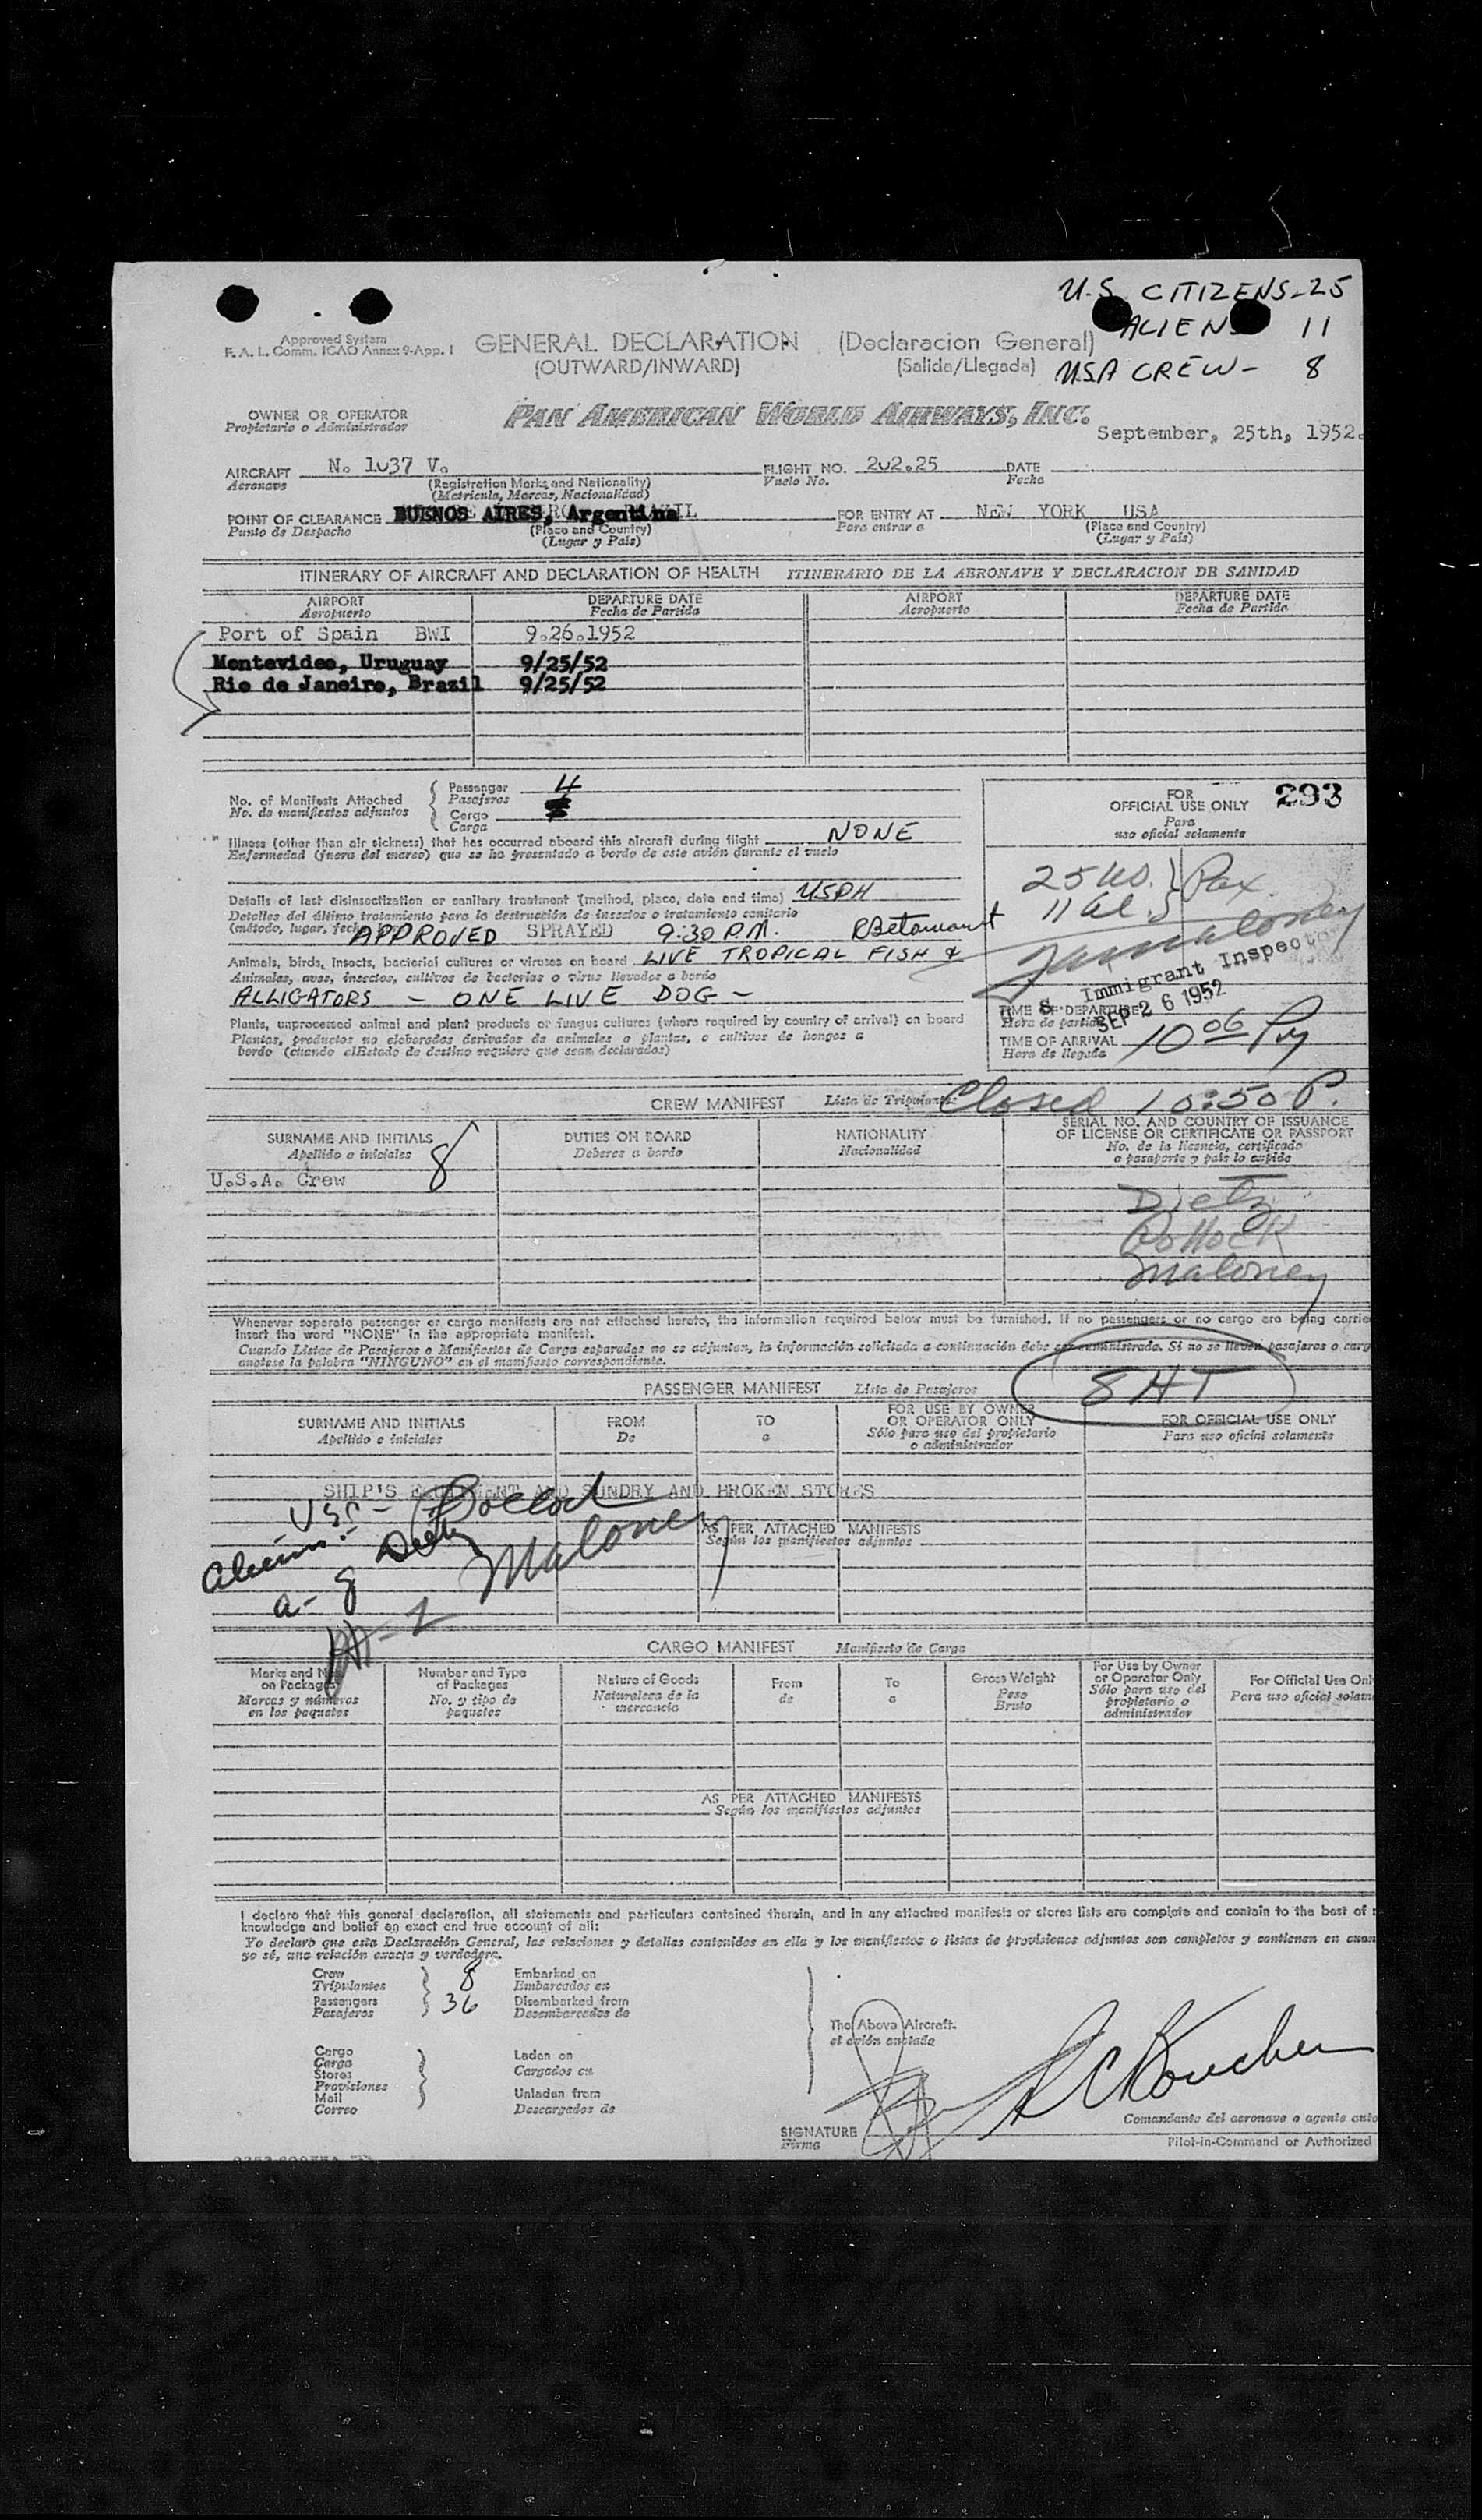 U.S. CITIZENS-25
ALIENS 11
USA CREW- 8
Approved System
F. A. L. Comm. ICAO Annex 9-App. 1
GENERAL DECLARATION (Declaracion General)
(OUTWARD/INWARD) (Salida/Llegada)
OWNER OR OPERATOR
Propietario o Administrador
PAN AMERICAN WORLD AIRWAYS, INC.
September, 25th, 1952.
AIRCRAFT N. 1037 V. FLIGHT NO. 202.25 DATE
Aeronave (Registration Marks and Nationality) Vuelo No. Fecha
(Matricula, Marcas, Nacionalidad)
POINT OF CLEARANCE BUENOS AIRES, Argentina FOR ENTRY AT NEW YORK USA
Punto de Despacho (Place and Country) Para entrar a (Place and Country)
(Lugar y País) (Lugar y País)
ITINERARY OF AIRCRAFT AND DECLARATION OF HEALTH ITINERARIO DE LA AERONAVE Y DECLARACION DE SANIDAD
AIRPORT DEPARTURE DATE AIRPORT DEPARTURE DATE
Aeropuerto Fecha de Partida Aeropuerto Fecha de Partida
Port of Spain BWI 9.26.1952
Montevideo, Uruguay 9/25/52
Rio de Janeiro, Brazil 9/25/52
No. of Manifests Attached
No. de manifiestos adjuntos
Passenger 4
Pasajeros
Cargo
Carga
FOR
OFFICIAL USE ONLY 293
Para
uso oficial solamente
Illness (other than air sickness) that has occurred aboard this aircraft during flight NONE
Enfermedad (fuera del mareo) que se ha presentado a bordo de este avión durante el vuelo
25 US. Pax.
11 al.
Details of last disinsectization or sanitary treatment (method, place, date and time) USPH
Detalles del último tratamiento para la destrucción de insectos o tratamiento sanitario
(método, lugar, fecha
APPROVED SPRAYED 9:30 P.M.
Animals, birds, insects, bacterial cultures or viruses on board LIVE TROPICAL FISH &
Animales, aves, insectos, cultivos de bacterias o virus llevados a bordo
ALLIGATORS - ONE LIVE DOG -
Maloney
U. S. Immigrant Inspector
SEP 26 1952
Plants, unprocessed animal and plant products or fungus cultures (where required by country of arrival) on board
Plantas, productos no elaborados derivados de animales o plantas, o cultivos de hongos a
bordo (cuando el Estado de destino requiere que sean declarados)
TIME OF DEPARTURE
Hora de partida
TIME OF ARRIVAL 10 06
Hora de llegada
Closed 10:50 P.
CREW MANIFEST Lista de Tripulantes
SURNAME AND INITIALS 8 DUTIES ON BOARD NATIONALITY SERIAL NO. AND COUNTRY OF ISSUANCE
Apellido e iniciales Deberes a bordo Nacionalidad OF LICENSE OR CERTIFICATE OR PASSPORT
No. de la licencia, certificado
o pasaporte y país lo expide
U.S.A. Crew
Dietz
Pollock
Maloney
Whenever separate passenger or cargo manifests are not attached hereto, the information required below must be furnished. If no passengers or no cargo are being carrie
insert the word "NONE" in the appropriate manifest.
Cuando Listas de Pasajeros o Manifiestos de Carga separados no se adjuntan, la información solicitada a continuación debe ser suministrada. Si no se lleven pasajeros o carg
anotese la palabra "NINGUNO" en el manifiesto correspondiente.
PASSENGER MANIFEST Lista de Pasajeros
8HT
SURNAME AND INITIALS FROM TO FOR USE BY OWNER
OR OPERATOR ONLY FOR OFFICIAL USE ONLY
Apellido e iniciales De a Sólo para uso del propietario
o administrador Para uso oficial solamente
SHIP'S EQUIPMENT AND SUNDRY AND BROKEN STORES
USC - Pollock
Aliens: Dietz
a- 8 Maloney
AS PER ATTACHED MANIFESTS
Según los manifiestos adjuntos
CARGO MANIFEST Manifiesto de Carga
Marks and Nos. on Packages Number and Type of Packages Nature of Goods From To Gross Weight For Use by Owner or Operator Only For Official Use Onl
Marcas y números en los paquetes No. y tipo de paquetes Naturaleza de la mercancia de a Peso Bruto Sólo para uso del propietario o administrador Para uso oficial solam
AS PER ATTACHED MANIFESTS
Según los manifiestos adjuntos
I declare that this general declaration, all statements and particulars contained therein, and in any attached manifests or stores lists are complete and contain to the best of
knowledge and belief an exact and true account of all:
Yo declaro que esta Declaración General, las relaciones y detalles contenidos en ella y los manifiestos o listas de provisiones adjuntos son completos y contienen en cuan
yo sé, una relación exacta y verdadera.
Crew 8 Embarked on
Tripulantes Embarcados en
Passengers 36 Disembarked from
Pasajeros Desembarcados de
The Above Aircraft.
el avión anotado
Cargo Laden on
Carga Cargados en
Stores
Provisiones
Mail Unladen from
Correo Descargados de
Comandante del aeronave o agente auto
SIGNATURE
Firma
Pilot-in-Command or Authorized